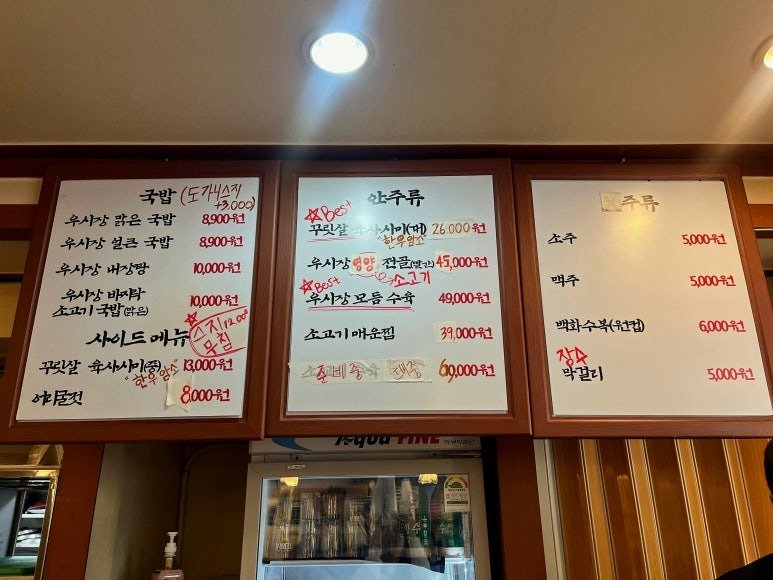 국밥 (도가니스지 +3,000)
우시장 맑은 국밥 8,900원
우시장 얼큰 국밥 8,900원
우시장 내장탕 10,000원
우시장 바지락
소고기 국밥(맑은) 10,000원
사이드 메뉴
☆스지 12000
무침
꾸릿살 육사시미(중) 13,000원
"한우암소"
어리굴젓 8,000원
안주류
☆Best
꾸릿살 육사시미(대) 26,000원
"한우암소"
우시장 영양 전골 45,000원
☆Best 소고기
우시장 모듬 수육 49,000원
소고기 매운찜 39,000원
준비중 69,000원
주류
소주 5,000원
맥주 5,000원
백화수복(원컵) 6,000원
장수
막걸리 5,000원
Aqua FINE